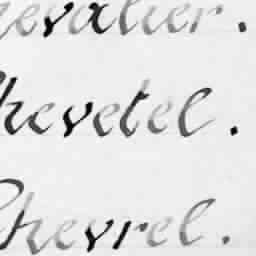 hevalier.
Chevetel.
Chevrel.